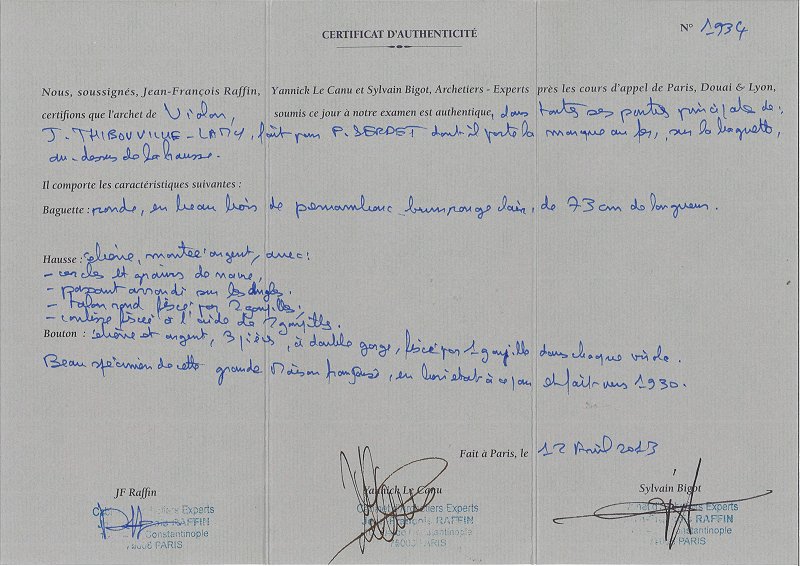 CERTIFICAT D'AUTHENTICITÉ
N° 1934
Nous, soussignés, Jean-François Raffin, Yannick Le Canu et Sylvain Bigot, Archetiers - Experts près les cours d'appel de Paris, Douai & Lyon,
certifions que l'archet de Violon, soumis ce jour à notre examen est authentique, dans toutes ses parties principales de:
J. THIBOUVILLE-LAMY, fait par P. SERDET dont il porte la marque au fer, sur la baguette,
au-dessus de la hausse.
Il comporte les caractéristiques suivantes :
Baguette : ronde, en beau bois de pernambouc brun rouge clair, de 73 cm de longueur.
Hausse : ébène, montée argent, avec:
- cercles et grains de nacre,
- passant arrondi sur les angles.
- talon rond fixé par 2 goupilles;
- coulisse fixée à l'aide de 2 goupilles.
Bouton : ébène et argent, 3 pièces, à double gorge, fixé par 1 goupille dans chaque virole.
Beau spécimen de cette grande Maison française, en bon état à ce jour et fait vers 1930.
Fait à Paris, le 12 Avril 2013
JF Raffin
Yannick Le Canu
Sylvain Bigot
Experts
RAFFIN
Constantinople
75008 PARIS
Archetiers Experts
RAFFIN
Constantinople
75008 PARIS
Experts
RAFFIN
Constantinople
PARIS